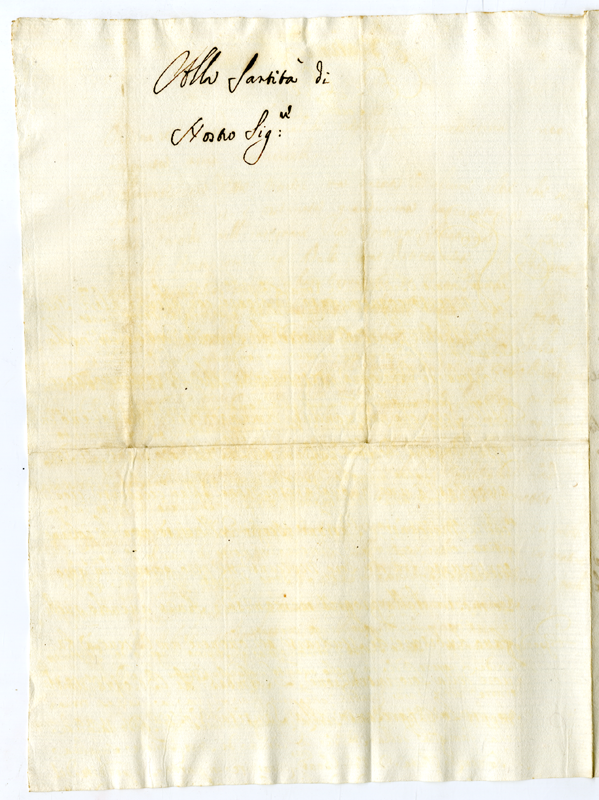 Alla Santità di
Nostro Sig:re